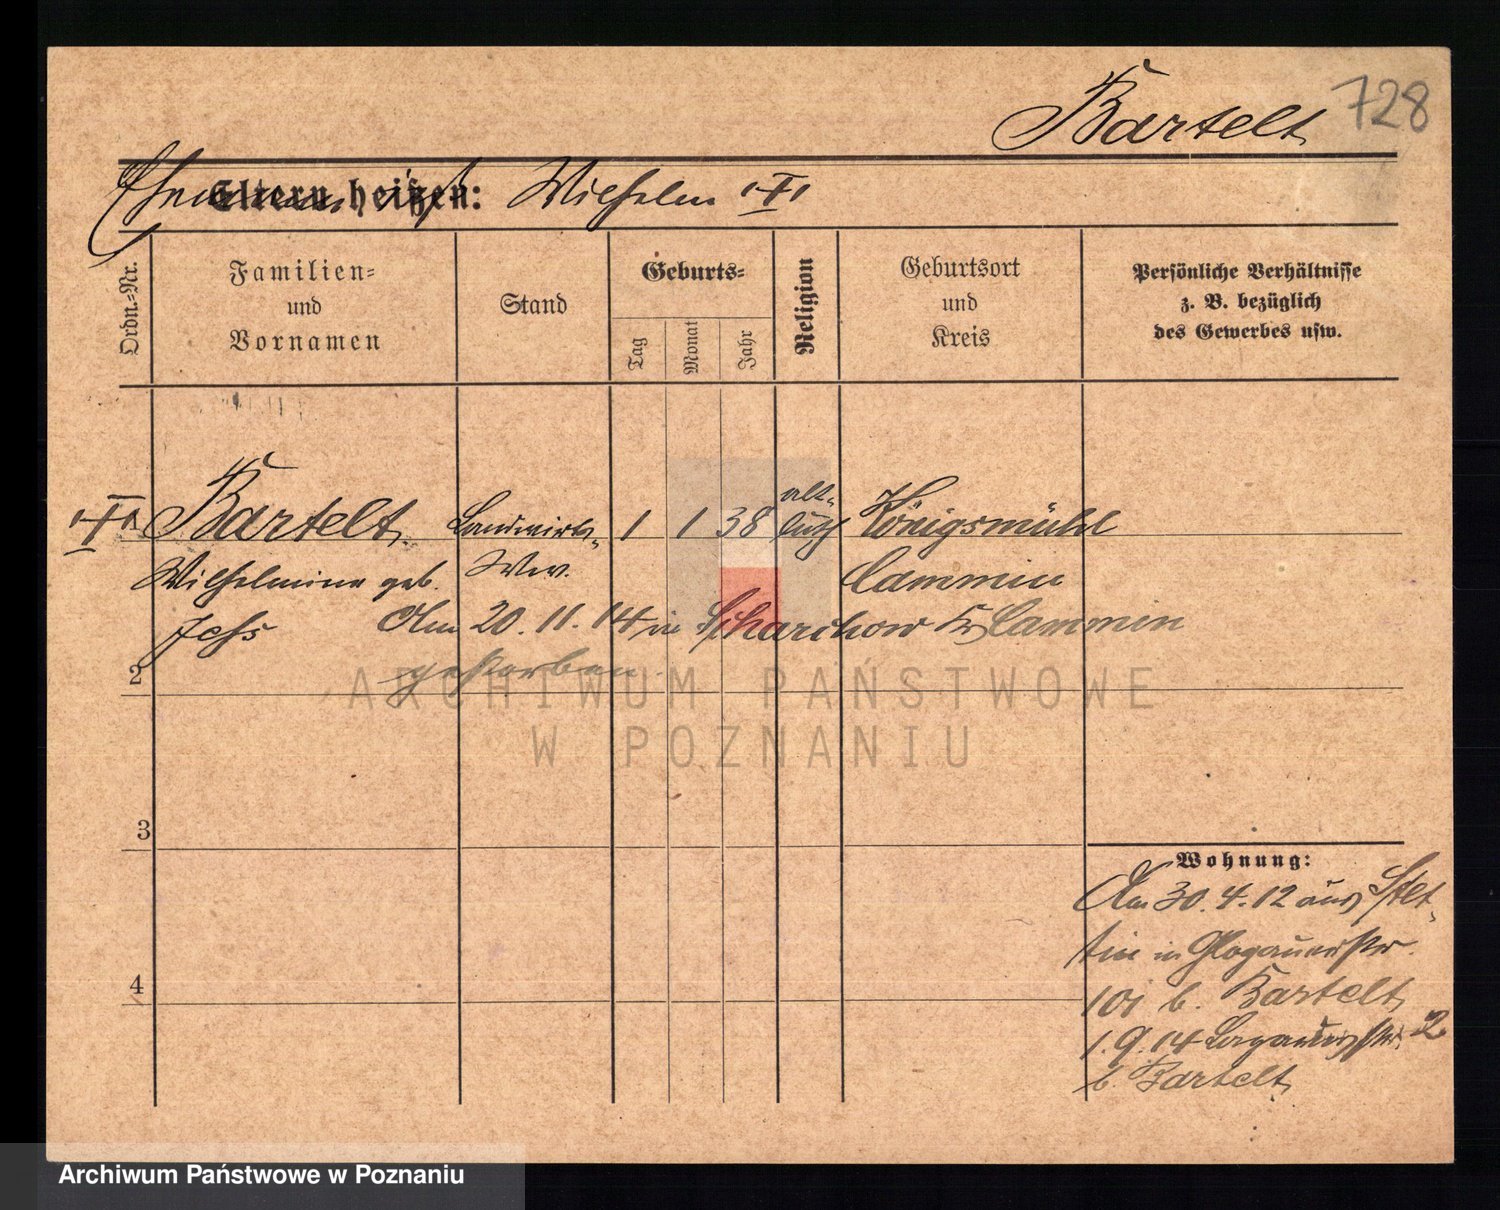 Bartelt 728
Eltern heißen: Wilhelm †
Ordn.-Nr.
Familien=
und
Vornamen
Stand
Geburts=
Tag
Monat
Jahr
Religion
Geburtsort
und
Kreis
Persönliche Verhältnisse
z. B. bezüglich
des Gewerbes usw.
† Bartelt Landwirts- 1 1 38 alt- luth Königsmühl
Wilhelmine geb. Ww. Cammin
Am 20.11.14 in Scharchow Kr Cammin
gestorben.
2
3
4
Wohnung:
Am 30.4.12 aus Stet-
tin in Glogauerstr.
101 b. Bartelt
1.9.14 2
b Bartelt
ARCHIWUM PAŃSTWOWE
W POZNANIU
Archiwum Państwowe w Poznaniu